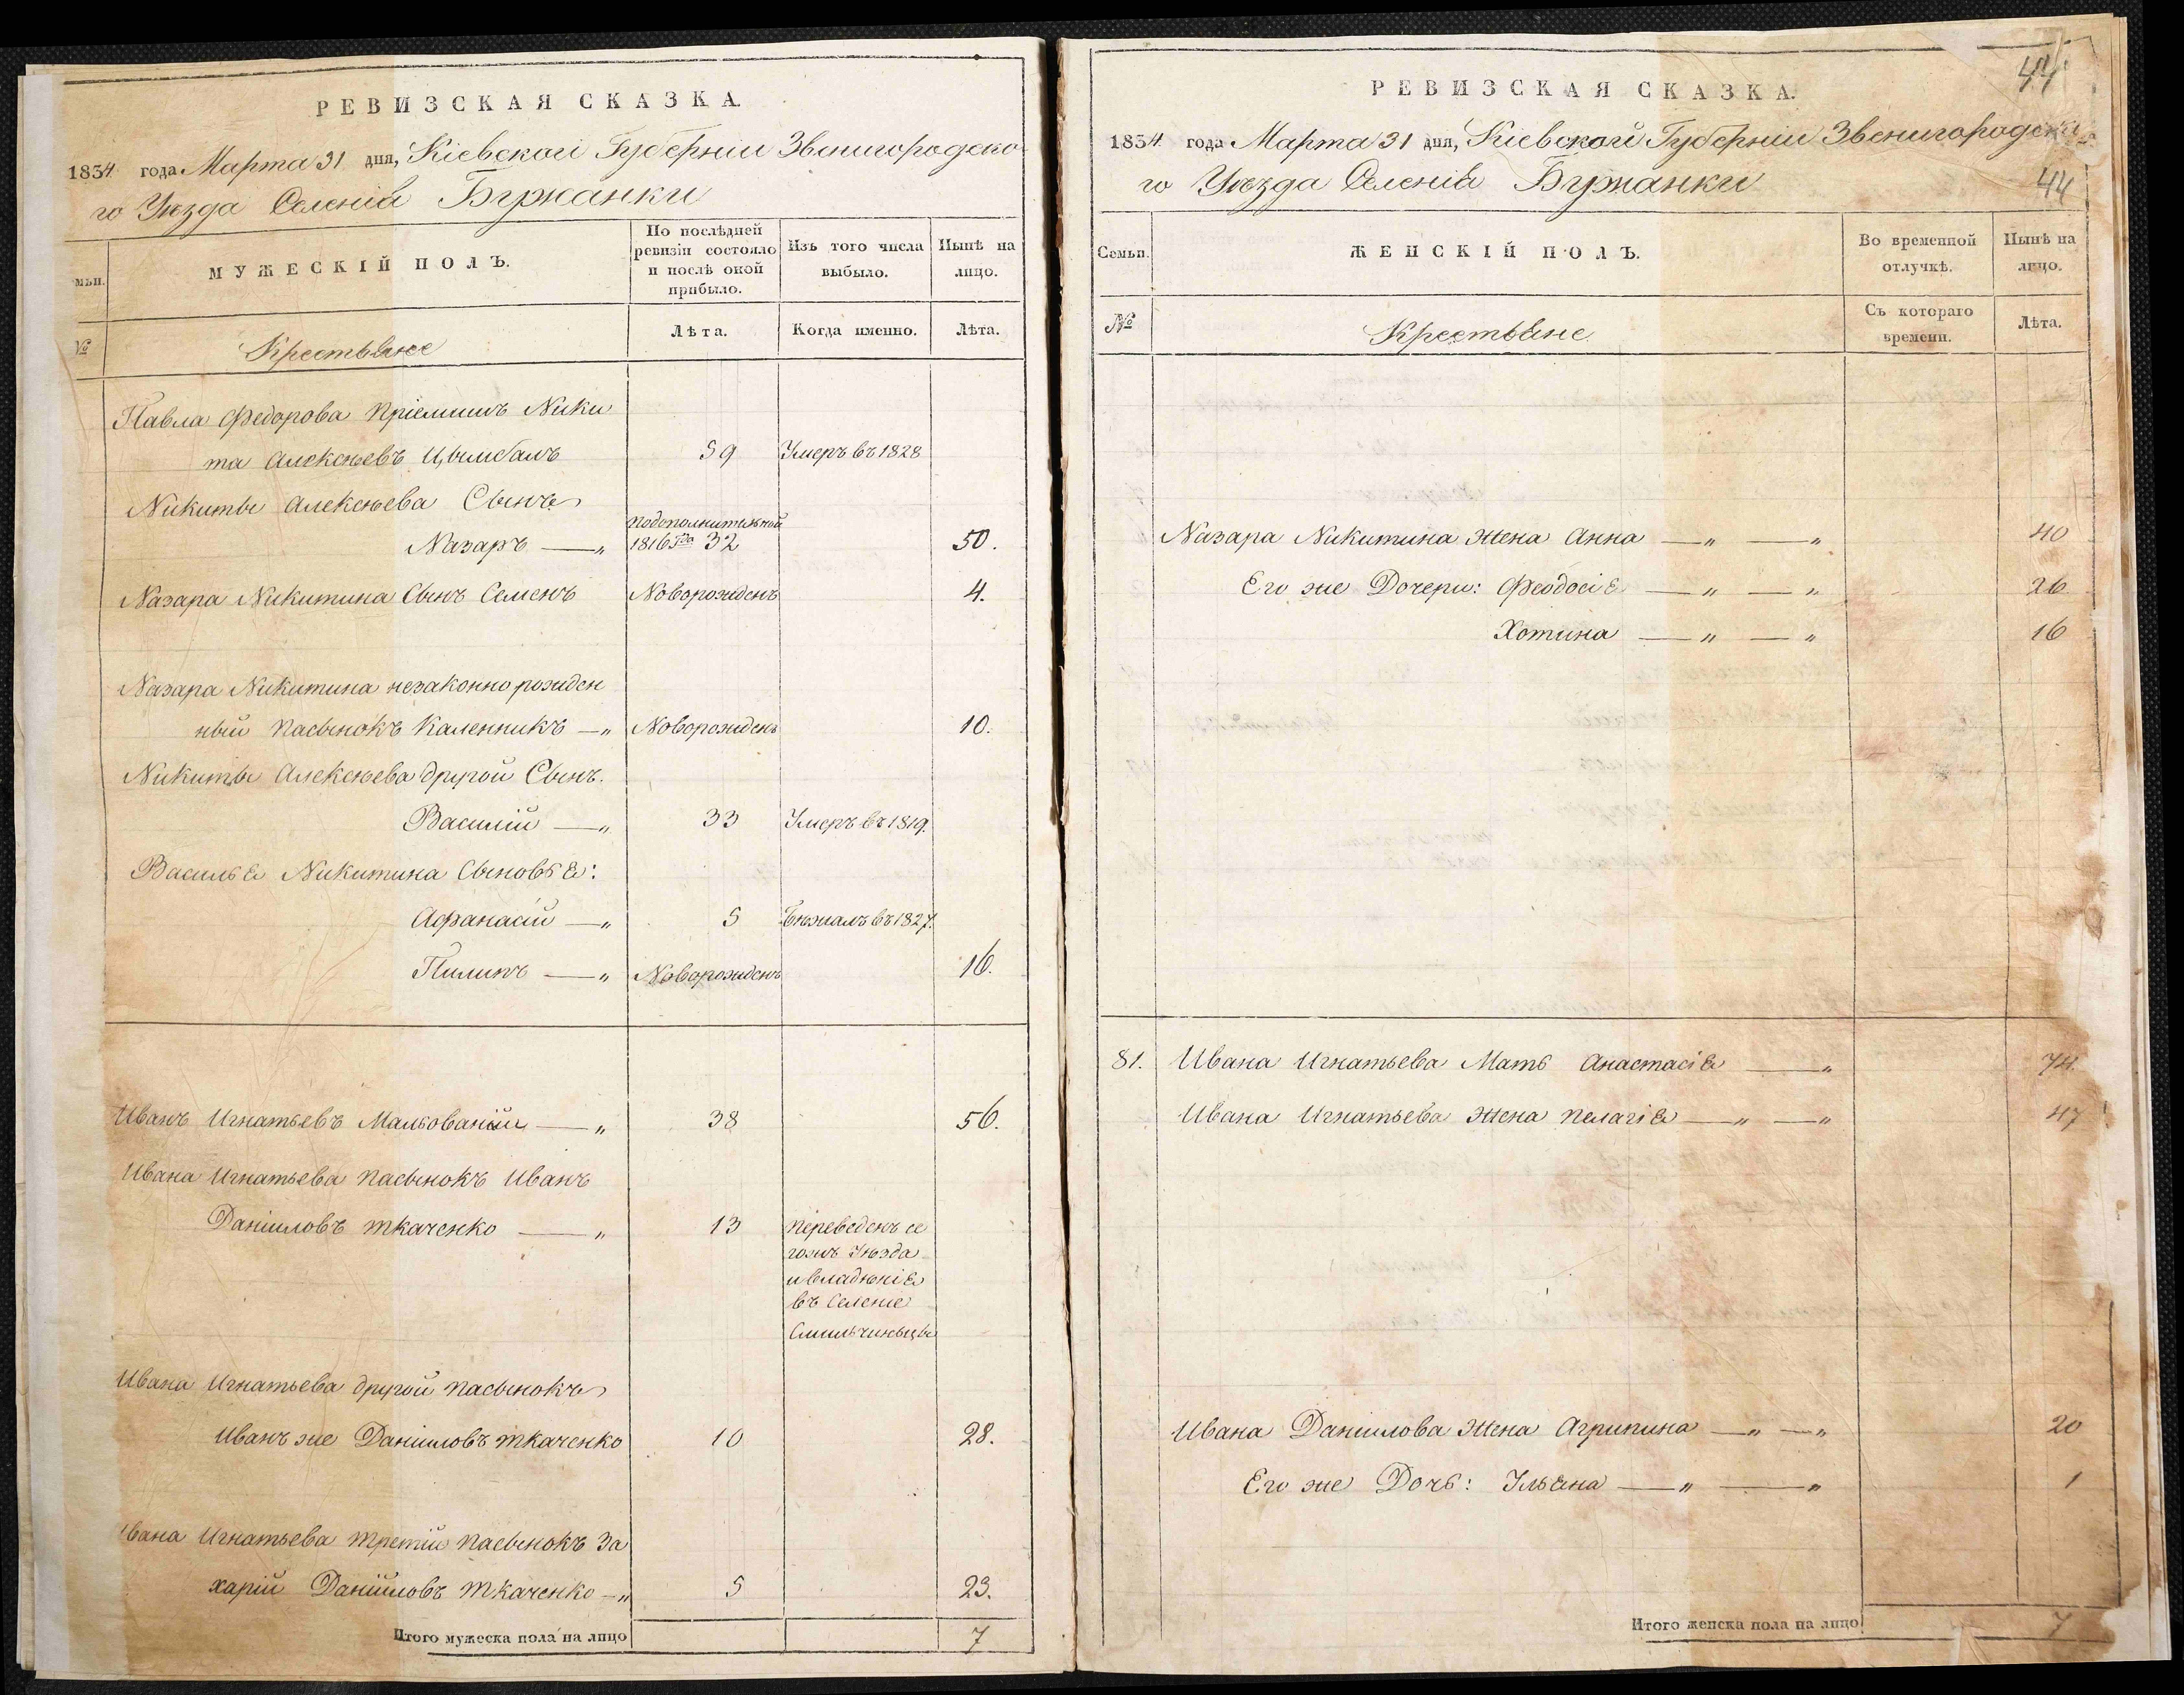 РЕВИЗСКАЯ СКАЗКА.
1834 года Марта 31 дня, Кіевской Губерніи Звенигородска
го Уѣзда Селенія Буржанки
мьи.
МУЖЕСКІЙ ПОЛЪ.
По послѣдней ревизіи состояло и послѣ оной прибыло.
Изъ того числа выбыло.
Нынѣ на лицо.
№
Крестьяне
Лѣта.
Когда именно.
Лѣта.
Павла Федорова пріемишъ Ники
та Алексѣевъ Цымбалъ 59 Умеръ въ 1828
Никиты Алексѣева Сынъ
подополнительной
Назаръ — „ 1816 года 32 50.
Назара Никитина Сынъ Семенъ Новорожденъ 4.
Назара Никитина незаконно рожден
ный пасынокъ Каленникъ — „ Новорожденъ 10.
Никиты Алексѣева другой Сынъ.
Василій — „ 33 Умеръ въ 1819.
Василья Никитина Сыновья:
Афанасій — „ 5 Бѣжалъ въ 1827.
Пилипъ — „ Новорожденъ 16.
Иванъ Игнатьевъ Мальованій — „ 38 56.
Ивана Игнатьева пасынокъ Иванъ
Даніиловъ Ткаченко — „ 13 переведенъ се
гожъ Уѣзда
и владѣнія
въ Селеніе
Смильчинцы
Ивана Игнатьева другой пасынокъ
Иванъ же Даніиловъ Ткаченко 10 28.
Ивана Игнатьева третій пасынокъ За
харій Даніиловъ Ткаченко — „ 5 23.
Итого мужеска пола на лицо 7
44
РЕВИЗСКАЯ СКАЗКА.
1834 года Марта 31 дня, Кіевской Губерніи Звенигородска
го Уѣзда Селенія Буржанки
44
Семьи.
ЖЕНСКІЙ ПОЛЪ.
Во временной отлучкѣ.
Нынѣ на лицо.
№
Крестьяне
Съ котораго времени.
Лѣта.
Назара Никитина жена Анна — „ — „ 40
Его же Дочери: Феодосія — „ — „ 26
Хотина — „ — „ 16
81. Ивана Игнатьева Мать Анастасія — „ 74.
Ивана Игнатьева жена Пелагія — „ — „ 47
Ивана Даніилова жена Агрипина — „ — „ 20
Его же Дочь: Ульяна — „ — „ 1
Итого женска пола на лицо 7